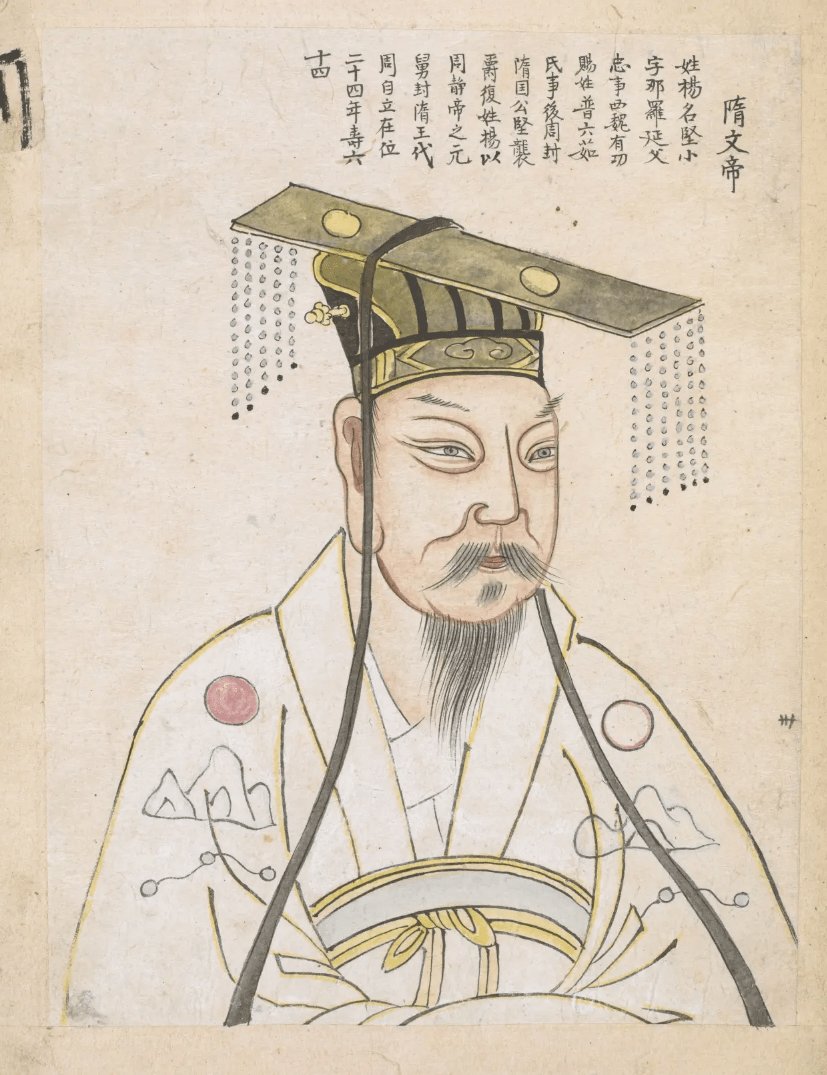 隋文帝
姓楊名堅小
字那羅延父
忠事西魏有功
賜姓普六茹
氏事後周封
隋国公堅襲
爵復姓楊以
周静帝之元
舅封隋王代
周自立在位
二十四年壽六
十四
卅